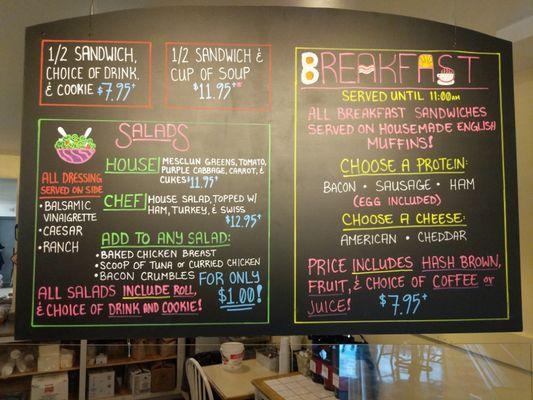 1/2 SANDWICH,
CHOICE OF DRINK,
& COOKIE $7.95+
1/2 SANDWICH &
CUP OF SOUP
$11.95+
SALADS
ALL DRESSING
SERVED ON SIDE
• BALSAMIC
VINAIGRETTE
• CAESAR
• RANCH
HOUSE MESCLUN GREENS, TOMATO,
PURPLE CABBAGE, CARROT, &
CUKES $11.95+
CHEF HOUSE SALAD, TOPPED W/
HAM, TURKEY, & SWISS
$12.95+
ADD TO ANY SALAD:
• BAKED CHICKEN BREAST
• SCOOP OF TUNA OR CURRIED CHICKEN
• BACON CRUMBLES
FOR ONLY
$1.00!
ALL SALADS INCLUDE ROLL,
& CHOICE OF DRINK AND COOKIE!
BREAKFAST
SERVED UNTIL 11:00AM
ALL BREAKFAST SANDWICHES
SERVED ON HOUSEMADE ENGLISH
MUFFINS!
CHOOSE A PROTEIN:
BACON • SAUSAGE • HAM
(EGG INCLUDED)
CHOOSE A CHEESE:
AMERICAN • CHEDDAR
PRICE INCLUDES HASH BROWN,
FRUIT, & CHOICE OF COFFEE OR
JUICE! $7.95+